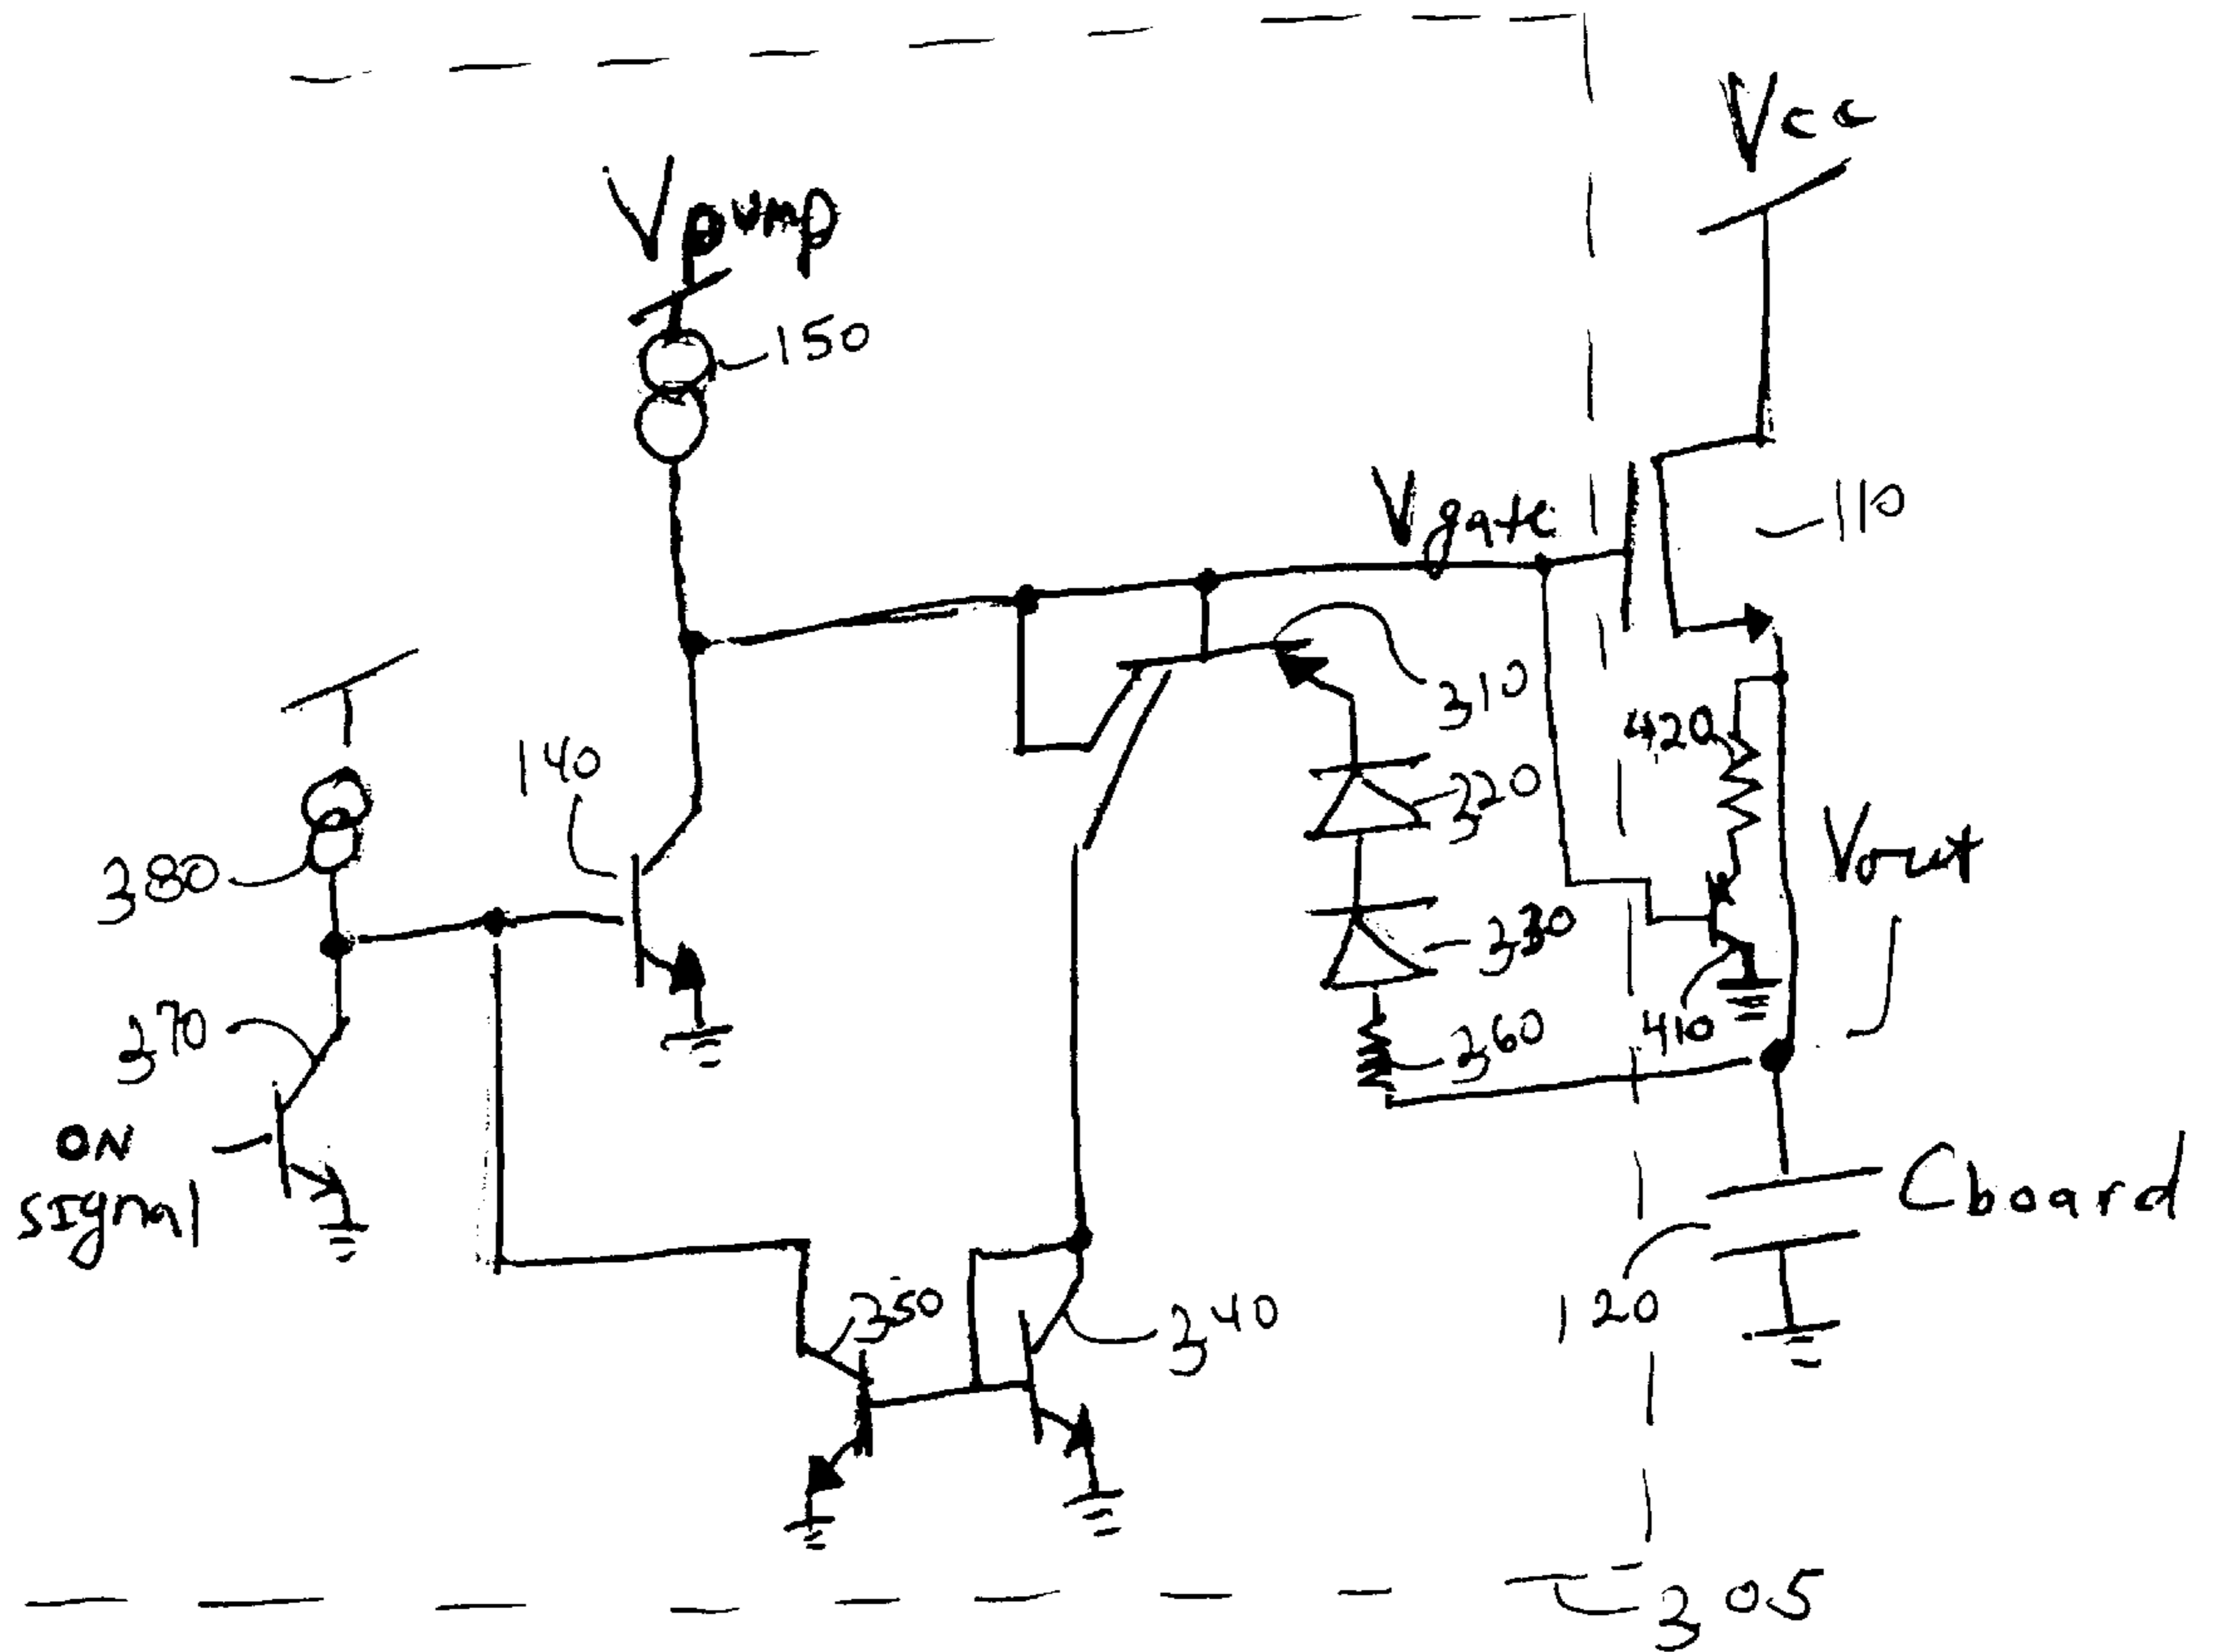 Vcc
Vpump
150
Vgate
110
310
420
140
320
380
Vout
330
370
360
410
ON
signal
Cboard
350
340
120
305